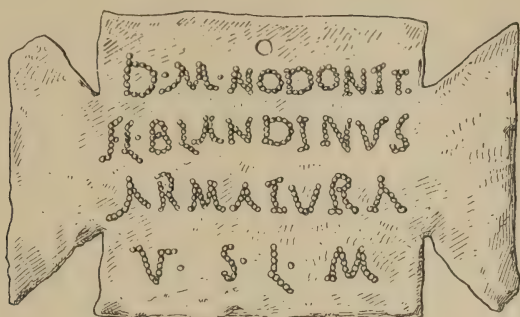 D·M·NODONIT·
FL·BLANDINVS
ARMATVRA
V·S·L·M